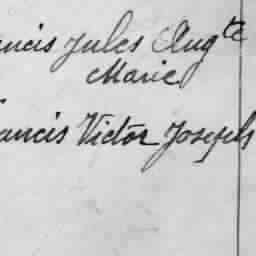 ancis Jules Augte
Marie
ancis Victor Joseph